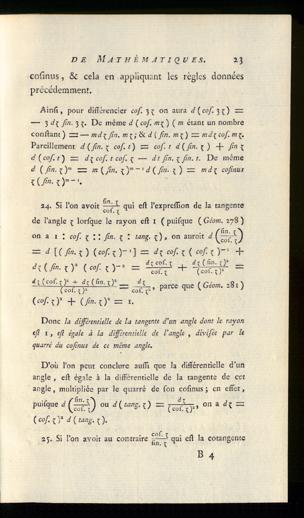 DE MATHÉMATIQUES. 23
cosinus, & cela en appliquant les règles données
précédemment.
Ainsi, pour différencier cos. 3 z on aura d (cos. 3 z) =
— 3 dz sin. 3 z. De même d (cos. m z) (m étant un nombre
constant) = — m dz sin. m z; & d (sin. m z) = m dz cos. m z.
Pareillement d (sin. z cos. t) = cos. t d (sin. z) + sin z
d (cos. t) = dz cos. t cos. z — dt sin. z sin. t. De même
d (sin. z)^m = m (sin. z)^{m-1} d (sin. z) = m dz cosinus
z (sin. z)^{m-1}.
24. Si l'on avoit \frac{sin. z}{cos. z} qui est l'expression de la tangente
de l'angle z lorsque le rayon est 1 (puisque (Géom. 278)
on a 1 : cos. z :: sin. z : tang. z), on auroit d (\frac{sin. z}{cos. z})
= d [(sin. z) (cos. z)^{-1}] = dz cos. z (cos. z)^{-1} +
dz (sin. z)² (cos. z)^{-2} = \frac{dz cos. z}{cos. z} + \frac{dz (sin. z)²}{(cos. z)²} =
\frac{dz (cos. z)² + dz (sin. z)²}{(cos. z)²} = \frac{dz}{(cos. z)²}, parce que (Géom. 281)
(cos. z)² + (sin. z)² = 1.
Donc la différentielle de la tangente d'un angle dont le rayon
est 1, est égale à la différentielle de l'angle, divisée par le
quarré du cosinus de ce même angle.
D'où l'on peut conclure aussi que la différentielle d'un
angle, est égale à la différentielle de la tangente de cet
angle, multipliée par le quarré de son cosinus; en effet,
puisque d (\frac{sin. z}{cos. z}) ou d (tang. z) = \frac{dz}{(cos. z)²}, on a dz =
(cos. z)² d (tang. z).
25. Si l'on avoit au contraire \frac{cos. z}{sin. z} qui est la cotangente
B 4